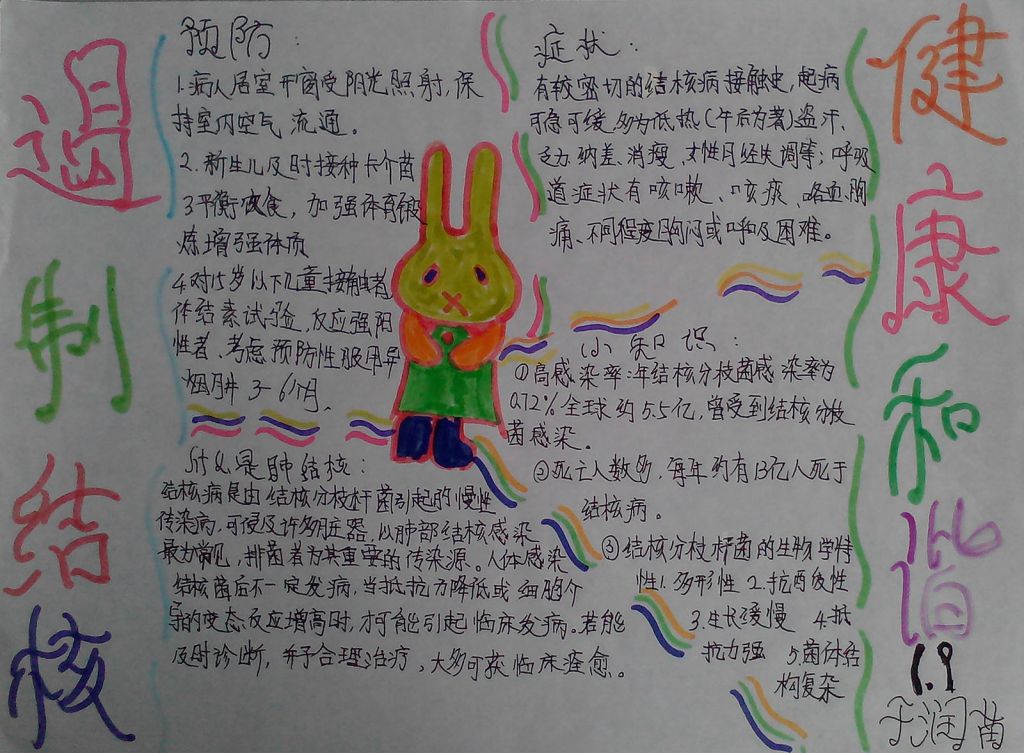 遏
制
结
核
预防：
1.病人居室开窗受阳光照射，保
持室内空气流通。
2.新生儿及时接种卡介苗
3平衡饮食，加强体育锻
炼增强体质
4.对15岁以下儿童接触者
体结素试验，反应强阳
性者，考虑预防性服用异
烟肼3-6个月。
什么是肺结核：
结核病是由结核分枝杆菌引起的慢性
传染病，可侵及许多脏器，以肺部结核感染
最为常见，排菌者为其重要的传染源。人体感染
结核菌后不一定发病，当抵抗力降低或细胞介
导的变态反应增高时，才可能引起临床发病。若能
及时诊断，并予合理治疗，大多可获临床痊愈。
症状：
有较密切的结核病接触史，起病
可急可缓，多为低热（午后为著）盗汗、
乏力、纳差、消瘦、女性月经失调等；呼吸
道症状有咳嗽、咳痰、咯血、胸
痛、不同程度胸闷或呼吸困难。
小知识：
①高感染率：年结核分枝菌感染率为
0.72%全球约5.5亿，曾受到结核分枝
菌感染。
②死亡人数多，每年约有13亿人死于
结核病。
③结核分枝杆菌的生物学特
性1.多形性 2.抗酉复性
3.生长缓慢 4.抵
抗力强 5.菌体结
构复杂
健
康
和
谐
1.9
于润苗